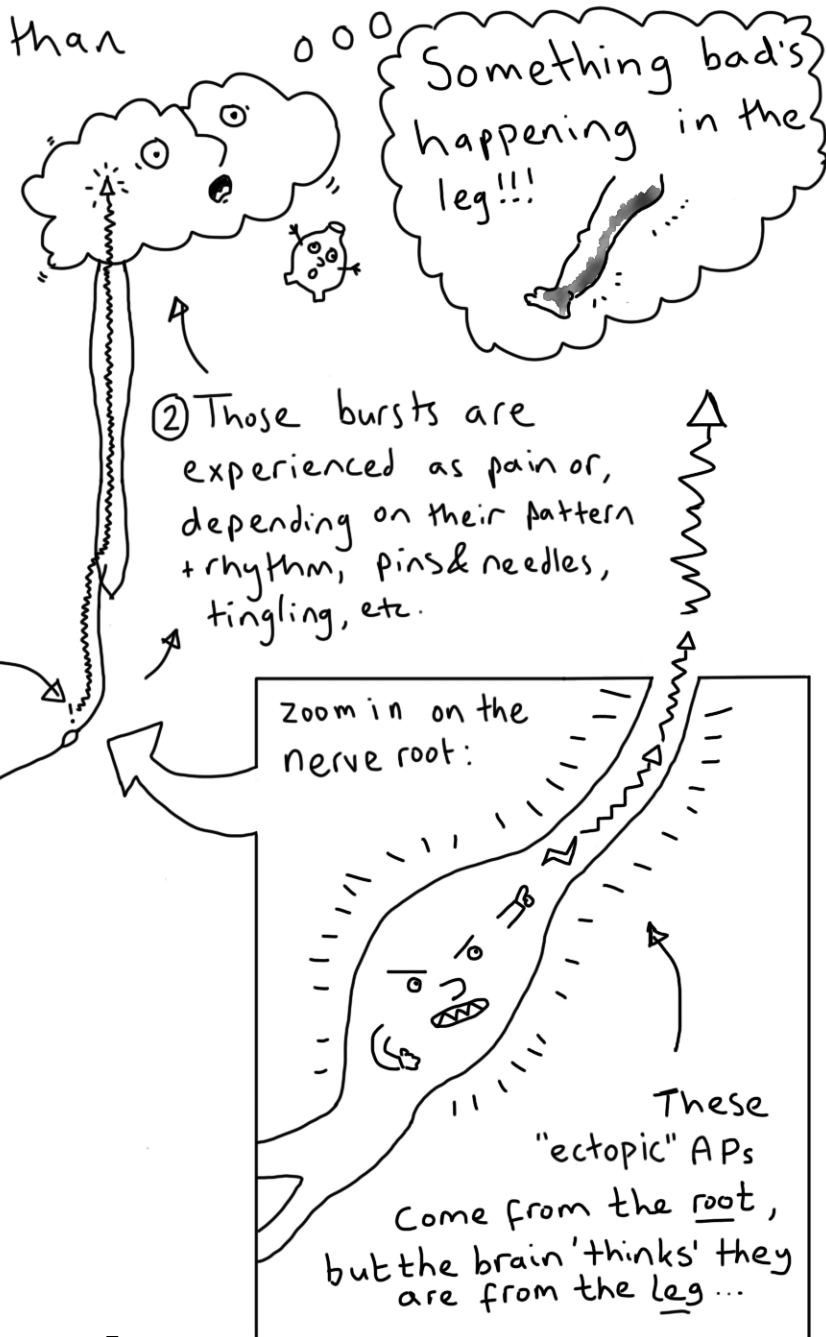 than
Something bad's
happening in the
leg!!!
② Those bursts are
experienced as pain or,
depending on their pattern
+ rhythm, pins & needles,
tingling, etc.
!
zoom in on the
nerve root:
These
"ectopic" APs
Come from the root,
but the brain 'thinks' they
are from the leg...